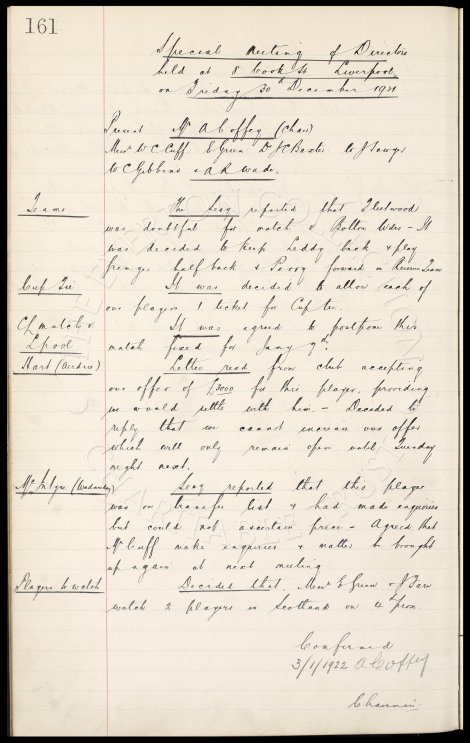 161
Special Meeting of Directors
held at 8 Cook St Liverpool
on Friday 30th December 1921
Present Mr A Coffey (Chair)
Messrs W C Cuff E Green Dr J C Baxter W J Sawyer
W C Gibbins & A R Wade.
Teams The Secy reported that Fleetwood
was doubtful for match v Bolton Wdrs - It
was decided to keep Leddy back & play
half back & Parry forward in Reserve Team
Cup Tie It was decided to allow each of
our players 1 ticket for Cup tie.
CL match v It was agreed to postpone this
L'pool match fixed for Jany 9th.
Hart (Airdrie) Letter read from club accepting
our offer of £2000 for this player, providing
we would settle with him. - Decided to
reply that we cannot increase our offer
which will only remain open until Tuesday
night next.
McIntyre (Wednesday) Secy reported that this player
was on transfer list & had made enquiries
but could not ascertain price - Agreed that
Mr Cuff make enquiries & matter be brought
up again at next meeting
Players to watch Decided that Messrs E Green &
watch 2 players in Scotland on 4th prox.
Confirmed
3/1/1922 A Coffey
Chairman.